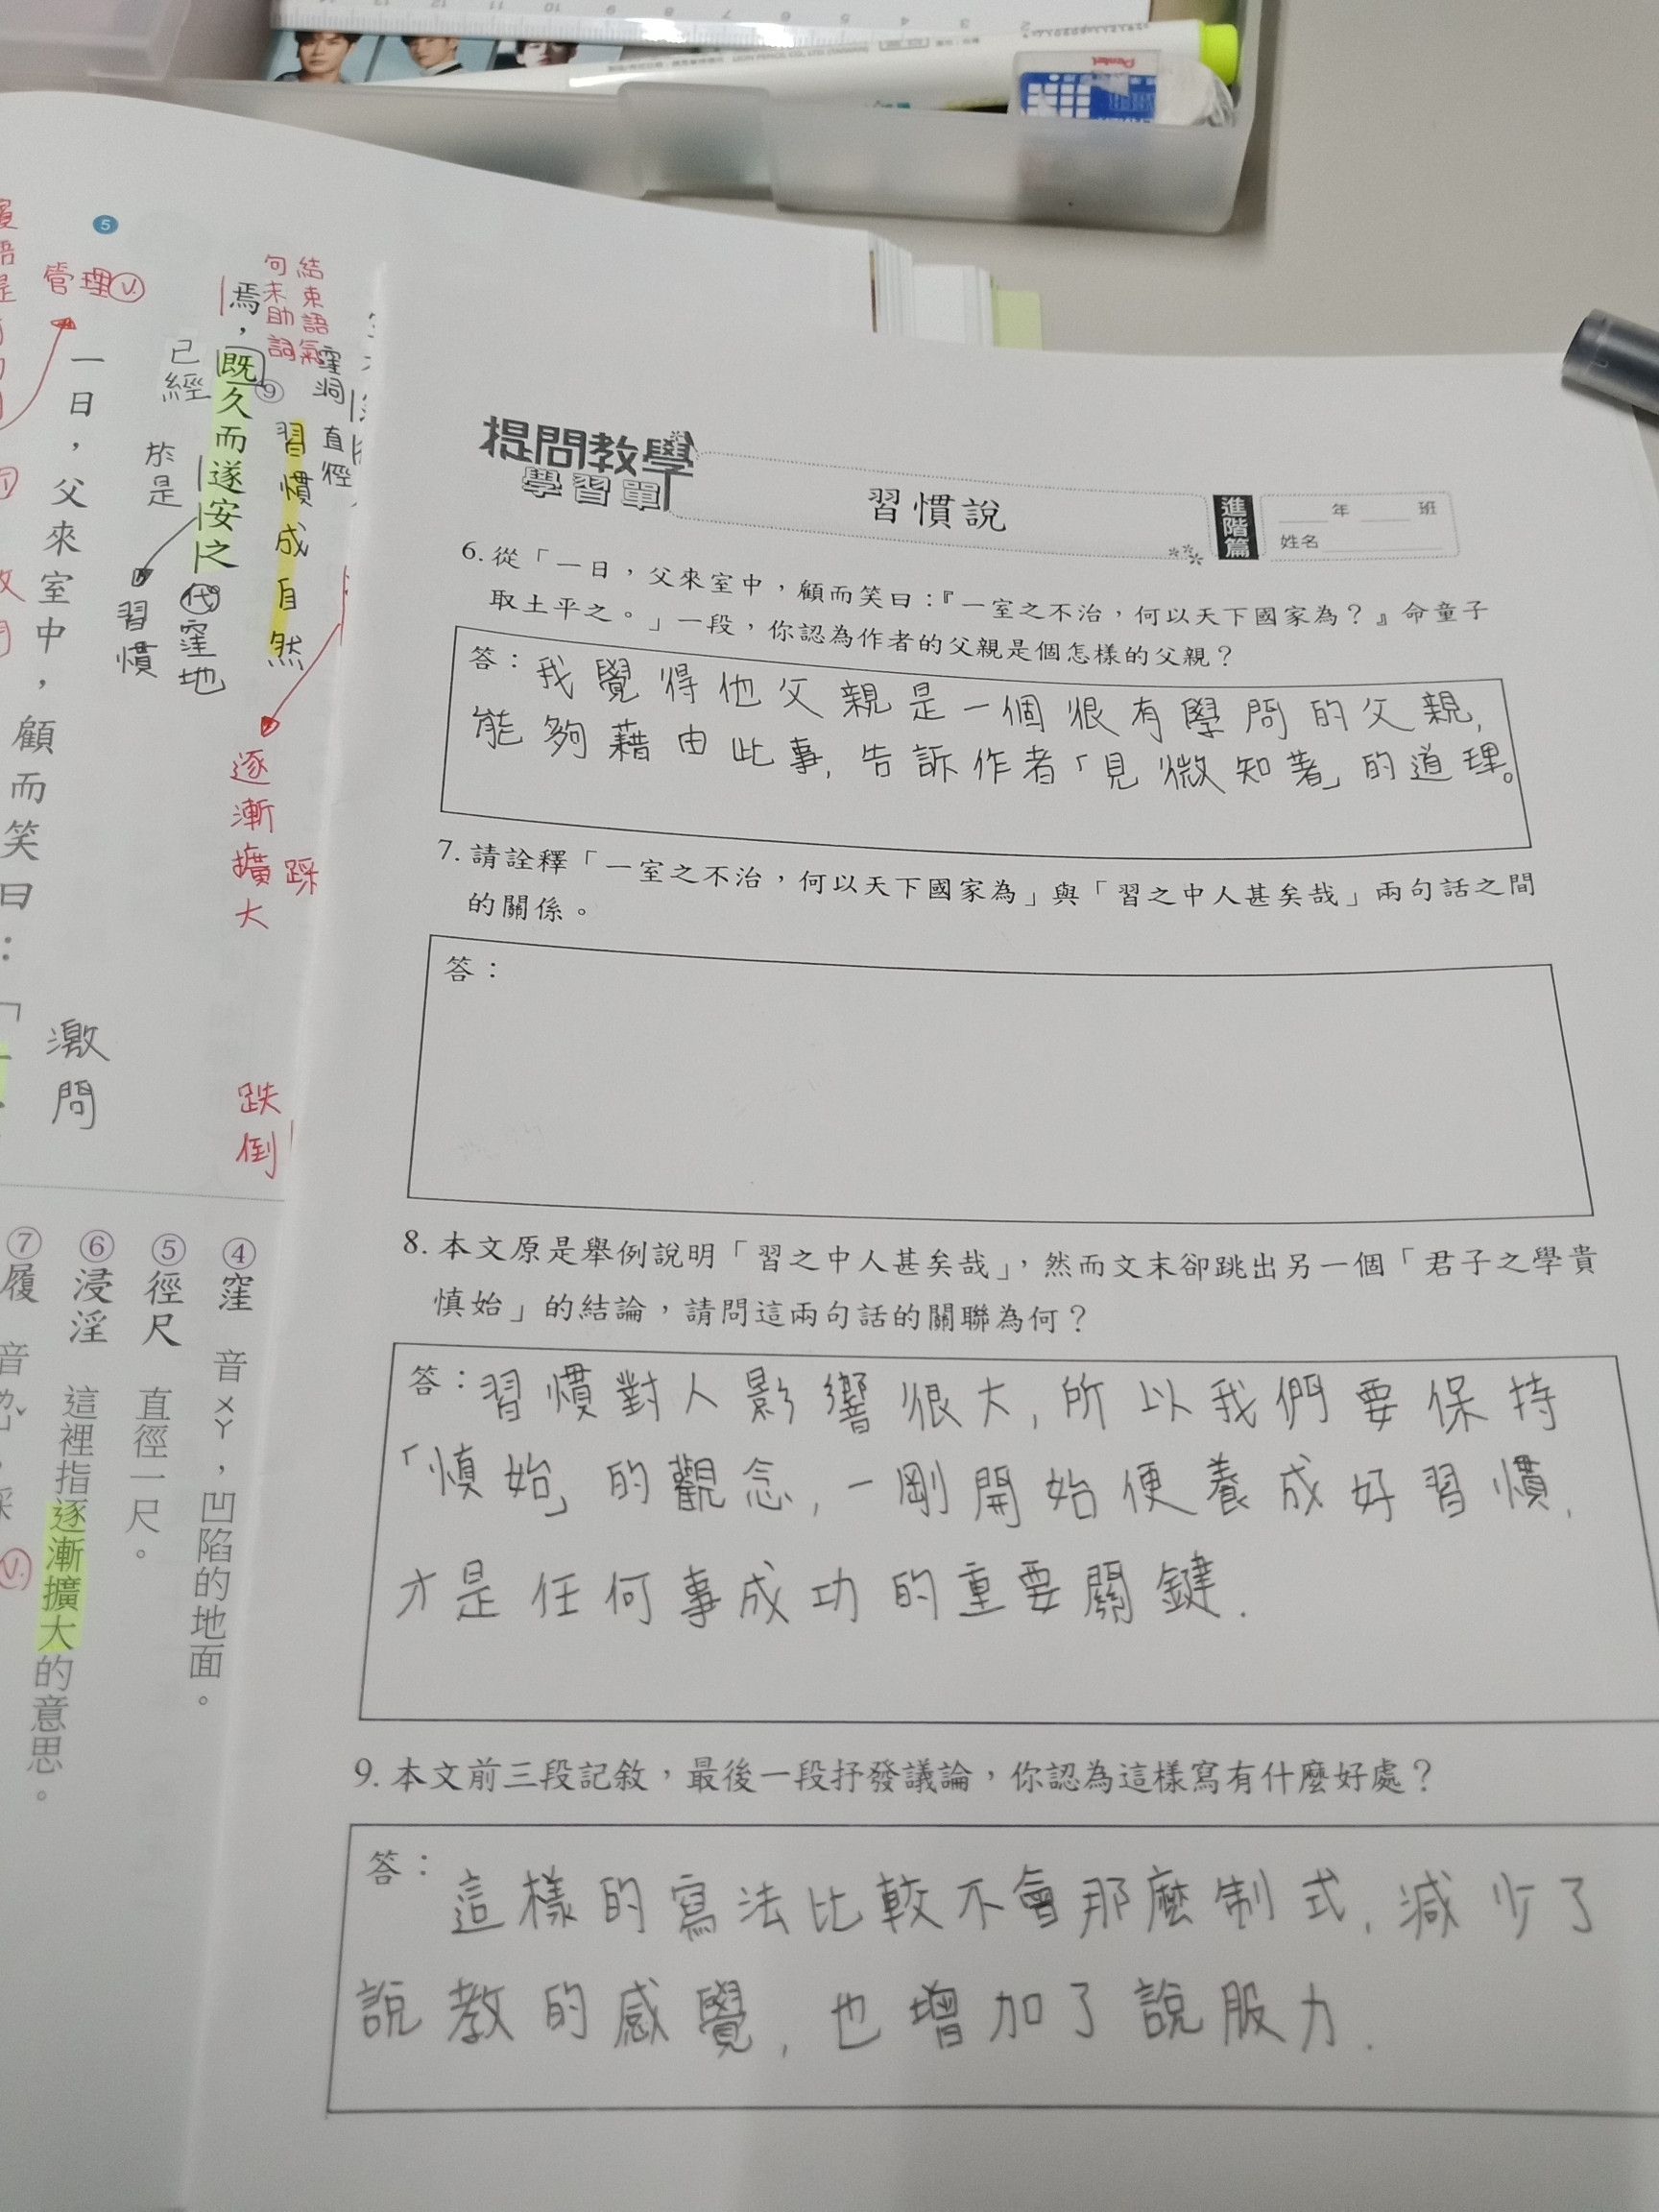 提問教學
學習單
習慣說
進階篇
年 班
姓名
6. 從「一日，父來室中，顧而笑曰：『一室之不治，何以天下國家為？』命童子
取土平之。」一段，你認為作者的父親是個怎樣的父親？
答：我覺得他父親是一個很有學問的父親,
能夠藉由此事,告訴作者「見微知著」的道理。
7. 請詮釋「一室之不治，何以天下國家為」與「習之中人甚矣哉」兩句話之間
的關係。
答：
8. 本文原是舉例說明「習之中人甚矣哉」，然而文末卻跳出另一個「君子之學貴
慎始」的結論，請問這兩句話的關聯為何？
答：習慣對人影響很大,所以我們要保持
「慎始」的觀念,一剛開始便養成好習慣,
才是任何事成功的重要關鍵.
9. 本文前三段記敘，最後一段抒發議論，你認為這樣寫有什麼好處？
答：這樣的寫法比較不會那麼制式,減少了
說教的感覺,也增加了說服力.
結束語氣
句末助詞
窪洞
直徑
習慣成自然
焉，既久而遂安之
⑨
已經
於是
習慣
代窪地
逐漸擴大
踩
跌倒
5
管理 v.
一日，父來室中，顧而笑曰：「
激問
④窪 音ㄨㄚ，凹陷的地面。
⑤徑尺 直徑一尺。
⑥浸淫 這裡指逐漸擴大的意思。
⑦履 音
v.
Pentel